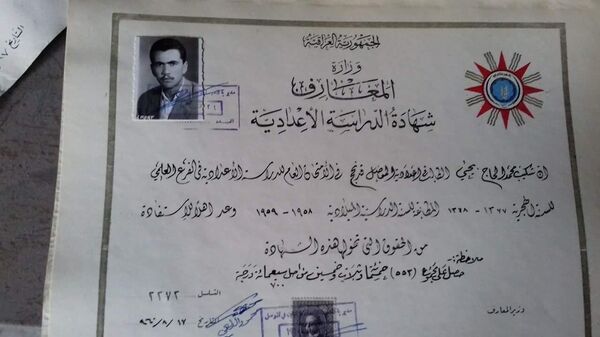 الجمهورية العراقية
وزارة
المعارف
شهادة الدراسة الأعدادية
ان شكيب محمد الحاج يحيى الموصل قد نجح في الامتحان العام للدراسة الاعدادية في الفرع العلمي
للسنة الهجرية ١٣٧٧ - ١٣٧٨ المطابقة للسنة الدراسية الميلادية ١٩٥٨ - ١٩٥٩ وعد اهلا للاستفادة
من الحقوق التي تخولها هذه الشهادة
ملاحظة:-
حصل على مجموع (٥٥٣) خمسمائة وثلاث وخمسين من اصل سبعمائة درجة
٧٠٠
التسلسل ٢٢٧٢
وزير المعارف
التاريخ ١٧ / ٨ / ٩٦٠
التاريخ